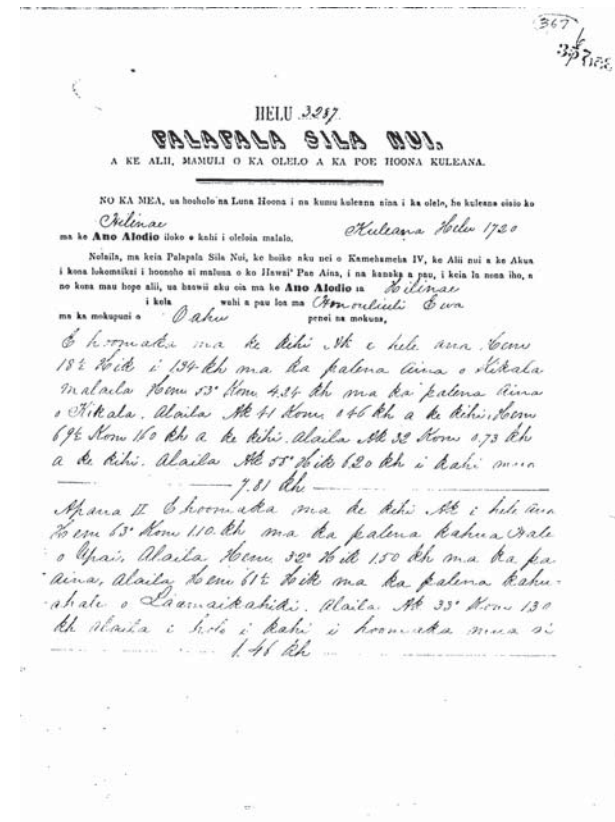 367
HELU 3287.
PALAPALA SILA NUI,
A KE ALII, MAMULI O KA OLELO A KA POE HOONA KULEANA.
NO KA MEA, ua hooholo na Luna Hoona i na kumu kuleana aina i ka olelo, he kuleana oiaio ko
Hilinae Kuleana Helu 1720
ma ke Ano Alodio iloko o kahi i oleloia malalo.
Nolaila, ma keia Palapala Sila Nui, ke hoike aku nei o Kamehameha IV, ke Alii nui a ke Akua
i kona lokomaikai i hoonoho ai maluna o ko Hawai' Pae Aina, i na kanaka a pau, i keia la nona iho, a
no kona mau hope alii, ua haawii aku oia ma ke Ano Alodio ia Hilinae
i kela wahi a pau loa ma Honouliuli Ewa
ma ka mokupuni o Oahu penei na mokuna,
E hoomaka ma ke kihi Ak e hele ana Hem
18½ Hik i 134 kh ma ka palena aina o Kikala
malaila Hem 53° Kom. 4.24 kh ma ka palena Aina
o Kikala. Alaila Ak 41 Kom. 0.46 kh a ke kihi. Hem
69½ Kom 160 kh a ke kihi. Alaila Ak 32 Kom 0.73 kh
a ke kihi. Alaila Ak 55° Hik 6.20 kh i kahi mua
7.81 kh
Apana II. E hoomaka ma ke kihi Ak i hele ana
Hem 63° Kom 1.10 kh ma ka palena kahua Hale
o Upai, Alaila Hem. 32° Hik 1.50 kh ma ka pa
aina, Alaila Hem 61½ Hik ma ka palena kahu-
ahale o Laamaikahiki. Alaila Ak 33° Kom 130
kh alaila i holo i kahi i hoomaka mua ai
1.46 kh